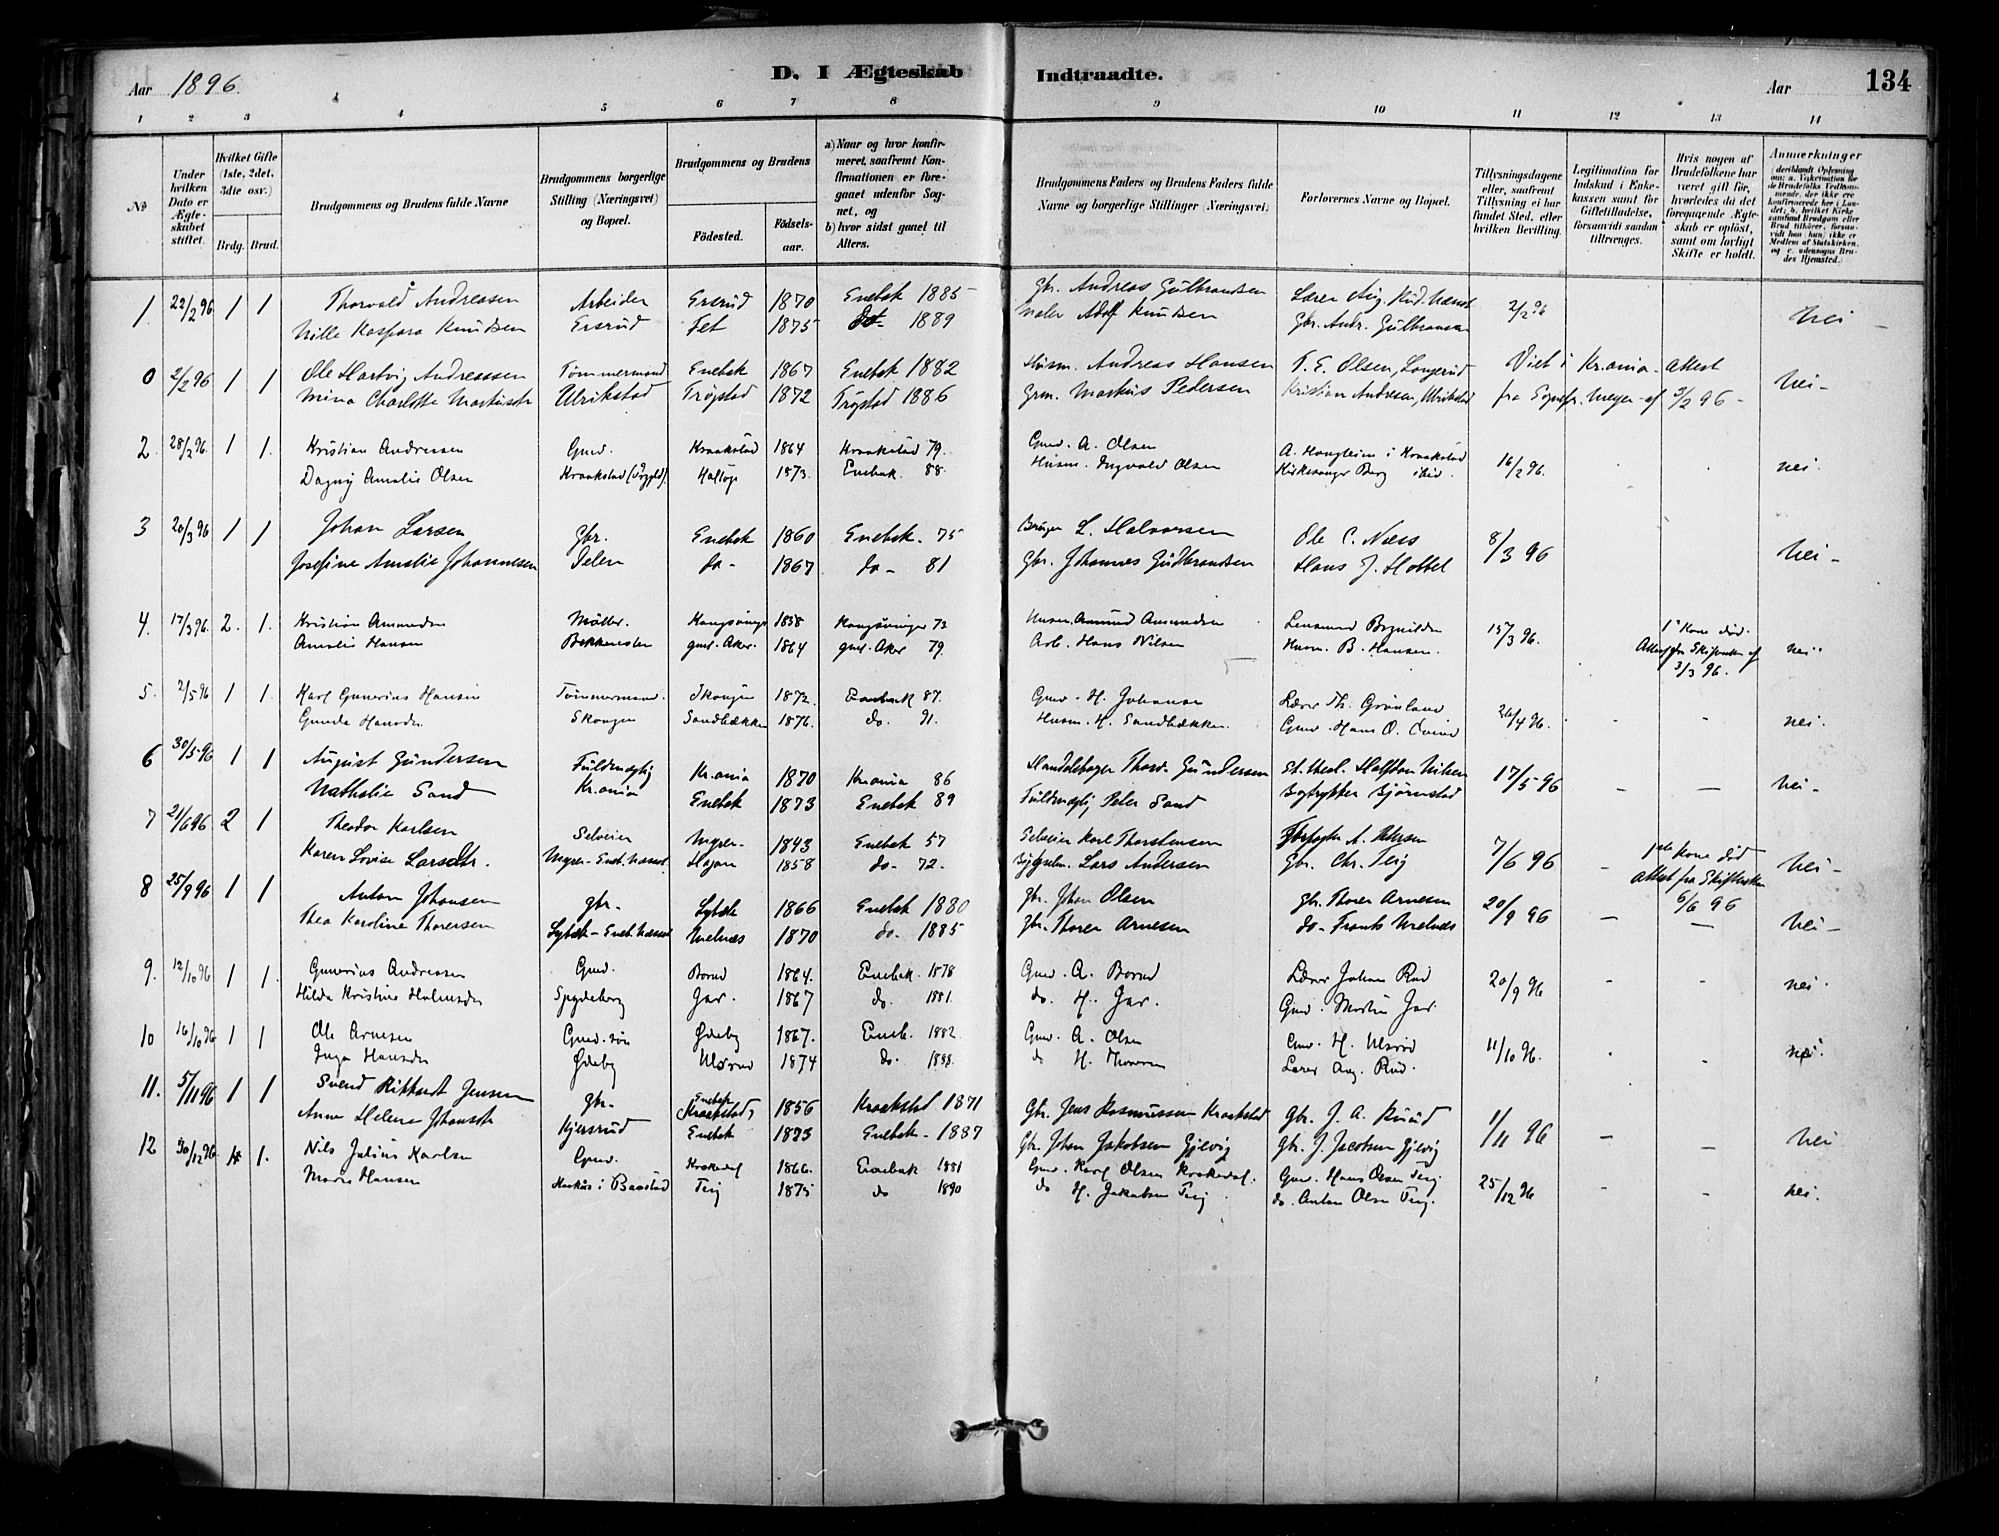 Aar 1896.
D. I Ægteskab Indtraadte.
Aar 134
1 2 3 4 5 6 7 8 9 10 11 12 13 14
No
Under hvilken Dato er Ægteskabet stiftet.
Hvilket Gifte (1ste, 2det, 3die osv.)
Brdg. Brud.
Brudgommens og Brudens fulde Navne
Brudgommens borgerlige Stilling (Næringsvei) og Bopæl.
Brudgommens og Brudens
Födested. Födselsaar.
a) Naar og hvor konfirmeret, saafremt Konfirmationen er foregaaet udenfor Sognet, og
b) hvor sidst gaaet til Alters.
Brudgommens Faders og Brudens Faders fulde Navne og borgerlige Stillinger (Næringsvei)
Forlovernes Navne og Bopæl.
Tillysningsdagene eller, saafremt Tillysning ei har fundet Sted, efter hvilken Bevilling.
Legitimation for Indskud i Enkekassen samt for Giftetilladelse, forsaavidt saadan tiltrænges.
Hvis nogen af Brudefolkene har været gift för, hvorledes da det foregaaende Ægteskab er oplöst, samt om lovligt Skifte er holdt.
Anmærkninger
1. 22/2 96 1 1 Thorvald Andreassen Arbeider Ersrud 1870 Enebak 1885 Gbr. Andreas Gulbrandsen Lærer Aug. Rud. 2/2 96 Nei -
Nille Kaspara Knudsen Ersrud Fet 1875 do- 1889 Maler Adolf Knudsen Gbr. Andr. Gulbransen
0 2/2 96 1 1 Ole Hartvig Andreassen Tømmermand Enebak 1867 Enebak 1882 Husm. Andreas Hansen T. E. Olsen, Langerud Viet i Kr.ania - Attest Nei -
Mina Charlotte Markusdtr Ulrikstad Trøgstad 1872 Trøgstad 1886 Grm. Markus Pedersen Kristian Andresen, Ulrikstad fra Sognepr. Meyer af 3/2 96 -
2. 28/2 96. 1 1. Kristian Andresen Gmd. Kraakstad 1864 Kraakstad 79. Gmd. A. Olsen A. Haugheim i Kraakstad 16/2 96. nei.
Dagny Amalie Olsen Kraakstad 1873. Enebak. 88. Husm. Ingvald Olsen Kirkesanger Berg ibid.
3 20/3 96 1 1 Johan Larsen Gbr. Enebak 1860 Enebak. 75 L. Halvorsen Ole C. Næss 8/3 96 Nei -
Josefine Amalie Johannesen do - 1867 do - 81 Gbr. Johannes Gudbrandsen Hans J. Holtet
4. 17/3 96. 2. 1. Kristian Amundsen Møller. Kongsvinger 1858 Kongsvinger 73 Husm. Amund Amundsen Lensmand 15/3 96. 1ste Kone død. nei.
Amalie Hansen Bekkensten gml. Aker. 1864 gml. Aker 79. Arb. Hans Nilsen Husm. B. Hansen. Attest fra Skifteretten af 3/3 96.
5. 2/5 96 1 1. Karl Gunerius Hansen Tømmermand. Skaugen 1872. Enebak 87. Gmd. H. Johansen Lærer Th. Grønlund 26/4 96. nei.
Gunda Hansdtr Skaugen Sandbækken 1876. do. 91. Husm. H. Sandbækken. Gmd. Hans O.
6 30/5 96 1 1 August Gundersen Fuldmægtig Kr.ania 1870 Kr.ania 86 Handelsborger Thorv. Gundersen St. theol. Halfdan Nilsen 17/5 96 - - Nei -
Nathalie Sand Kr.ania Enebak 1873 Enebak 89 Fuldmægtig Peter Sand Bogtrykker Bjørnstad
7 21/6 96 2 1 Theodor Karlsen Selveier Myrer- 1843 Enebak 57 Selveier Karl Thorstensen A. Petersen 7/6 96 - 1ste Kone død Nei -
Karen Lovise Larsdtr. Myrer - Hagan 1858 do- 72. Lars Andersen Gbr. Chr. Teig Attest fra Skifteretten 6/6 96
8 25/9 96 1 1 Anton Johansen gbr- 1866 Enebak 1880 Gbr. Johan Olsen Gbr. Thorer Arnesen 20/9 96 - - Nei -
Thea Karoline Thorersen 1870 do- 1885 Gbr. Thorer Arnesen do-
9. 12/10 96 1 1. Gunerius Andreasen Gmd. Borud 1864. Enebak. 1878 Gmd. A. Borud Lærer Johan Rud 20/9 96 nei.
Hilda Kristine Halvorsdtr Spydeberg Jar. 1867 do. 1881. do. H. Jar. Gmd. Martin Jar
10 16/10 96. 1 1 Ole Arnesen Gmd. søn Ødeby 1867. Eneb. 1882 Gmd. A. Olsen Gmd. H. Ulsrød 11/10 96. nei.
Inga Hansdtr Ødeby Ulsrud 1874 do. 1888. do H. Thoresen Lærer Aug. Rud.
11. 5/11 96 1 1 Svend Rikhart Jensen gbr- Kraakstad 1856 Kraakstad 1871 Gbr. Jens Rasmussen Kraakstad Gbr. J. A. Ruud 1/11 96 - - Nei
Anne Helene Johansdtr Kjensrud Enebak 1873 Enebak - 1887 Gbr. Johan Jakobsen Gjelvig Gbr. J. Jacobsen Gjelvig
12 30/12 96 1. Nils Julius Karlsen Gmd. Krokedal 1866. Enebak 1881 Gmd. Karl Olsen Krokedal. Gmd. Hans Olsen Teig 25/12 96 nei.
Marie Hansen i Baastad Teig 1875 do 1890 do H. Jakobsen Teig. do. Anton Olsen Teig.